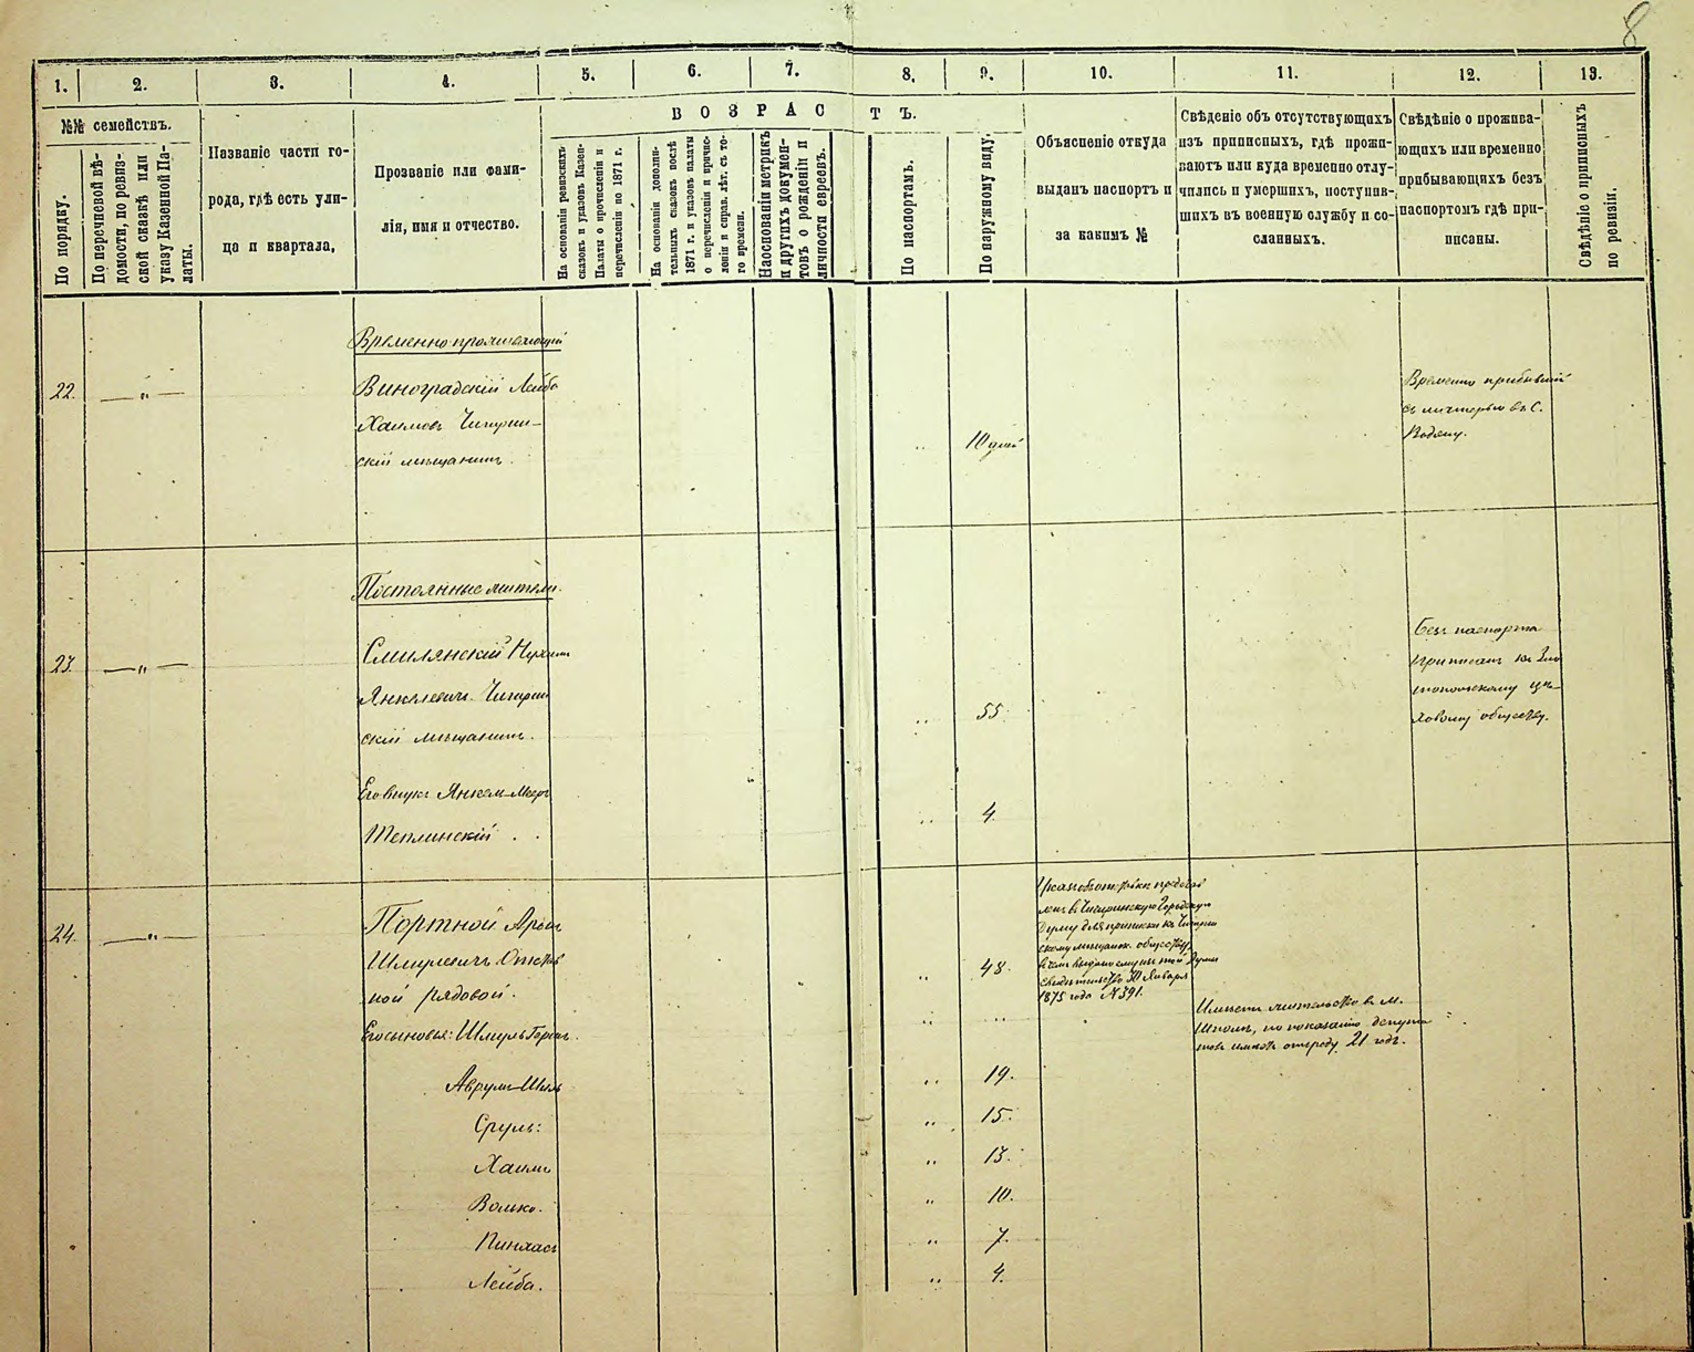 8
1. 2. 3. 4. 5. 6. 7. 8. 9. 10. 11. 12. 13.
№№ семействъ.
По порядку.
По перечневой вѣ-
домости, по ревиз-
ской сказкѣ или
указу Казенной Па-
латы.
Названіе части го-
рода, гдѣ есть ули-
ца и квартала,
Прозваніе или фами-
лія, имя и отчество.
ВОЗРАСТЪ.
На основаніи ревизскихъ
сказокъ и указовъ Казен-
Палаты о причисленіи и
перечисленіи по 1871 г.
На основаніи дополни-
тельныхъ сказокъ послѣ
1871 г. и указовъ палаты
о перечисленіи и причис-
леніи и справ. лѣт. съ то-
го времени.
На основаніи метрикъ
и другихъ докумен-
товъ о рожденіи и
личности евреевъ.
По паспортамъ.
По наружному виду.
Объясненіе откуда
выданъ паспортъ и
за какимъ №
Свѣденіе объ отсутствующихъ
изъ приписныхъ, гдѣ прожи-
ваютъ или куда временно отлу-
чились и умершихъ, поступив-
шихъ въ военную службу и со-
сланныхъ.
Свѣдѣніе о прожива-
ющихъ или временно
прибывающихъ безъ
паспортомъ гдѣ при-
писаны.
Свѣдѣніе о приписныхъ
по ревизіи.
Временно проживающій
22. — " — Виноградскій Лейба
Хаимовъ Чигрин-
скій мѣщанинъ.
" 10 дней
Временно прибывшій
съ матерью въ С.
Водяну.
Постоянные жители.
23. — " — Смилянскій Нухим
Янкелевичъ Чигрин
скій мѣщанинъ.
" 55
Безъ паспорта
приписанъ къ Зла
топольскому це-
ховому обществу.
Его внукъ Янкель-Мееръ
Теплинскій . .
" 4.
24. — " — Портной Аронъ
Шмулевичъ Отстав
ной рядовой.
" 48.
въ Чигиринскую Городскую
Думу для приписки къ Чигрин
скому мѣщанск. обществу,
свидѣтельство 30 Января
1875 года № 391.
Его сыновья: Шмуль Герш.
" "
Имѣетъ жительство въ м.
Шполѣ, по показанію депута
товъ имѣетъ отъ роду 21 годъ.
Аврумъ-Шиль " 19.
Сруль: " 15.
Хаимъ " 13.
Волько. " 10.
Пинхасъ " 7.
Лейба. " 4.